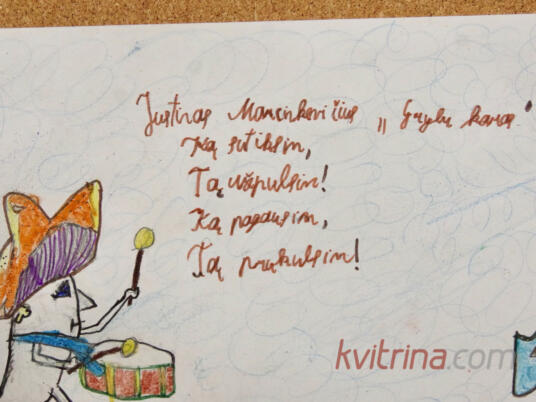 Justinas Marcinkevičius „Grybų karas"
Ką sutiksim,
Tą užpulsim!
Ką pagausim,
Tą prikulsim!
kvitrina.com